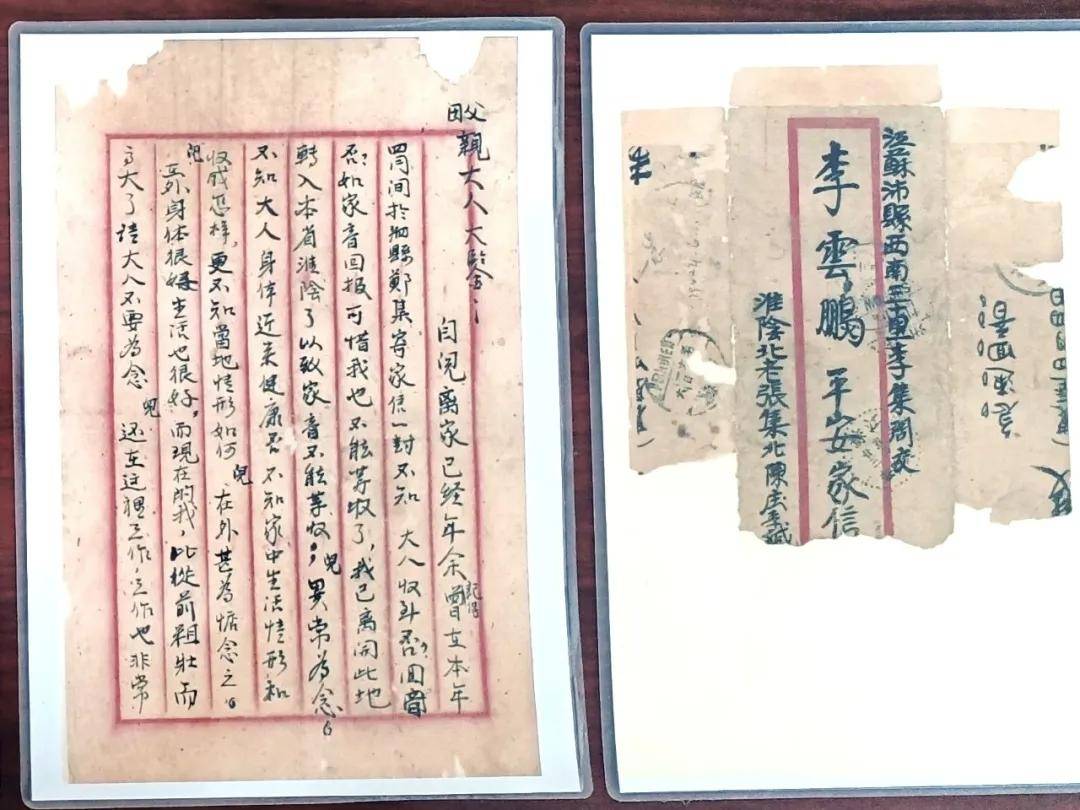 父
母親大人大鑒：
自兒离家已经年余記得曾在本年
間於泗縣鄭集寄家信一封不知 大人收到否？回音
否？如家音回报可惜我也不能等收了，我已离開此地
轉入本省淮陰了以致家音不能等收，兒異常為念。
不知大人身体近来健康否不知家中生活情形和
收成怎样，更不知當地情形如何 兒在外甚為惦念之。
兒在外身体很好生活也很好，而現在的我，比從前粗壯而
高大了請大人不要為念 兒还在这裡工作，工作也非常
江蘇沛縣西南
李集
李雲鵬 平安家信
淮陰北
張集北陳